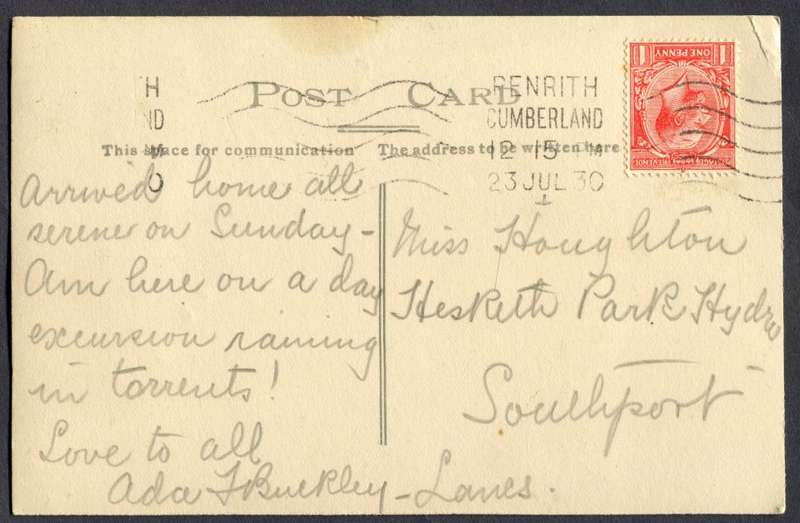 POST CARD
This space for communication
The address to be written here
H
ND
O
PENRITH
CUMBERLAND
12 15 M
23 JUL 30
ONE PENNY
1 1
POSTAGE REVENUE
Arrived home all
serene on Sunday –
Am here on a day
excursion raining
in torrents!
Love to all
Ada F Buckley
Miss Houghton
Hesketh Park Hydro
Southport
– Lancs.